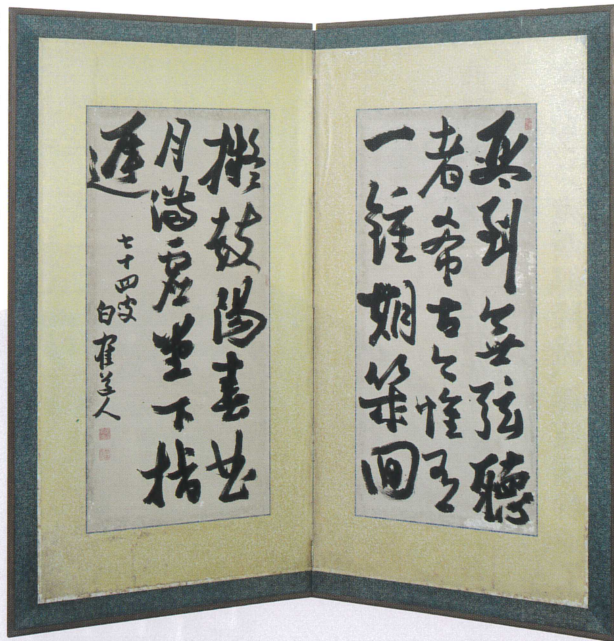 琴到無弦聽
者希古今惟有
一鍾期幾回
擬鼓陽春曲
月滿虛堂下指
遲
七十四叟
白隺道人